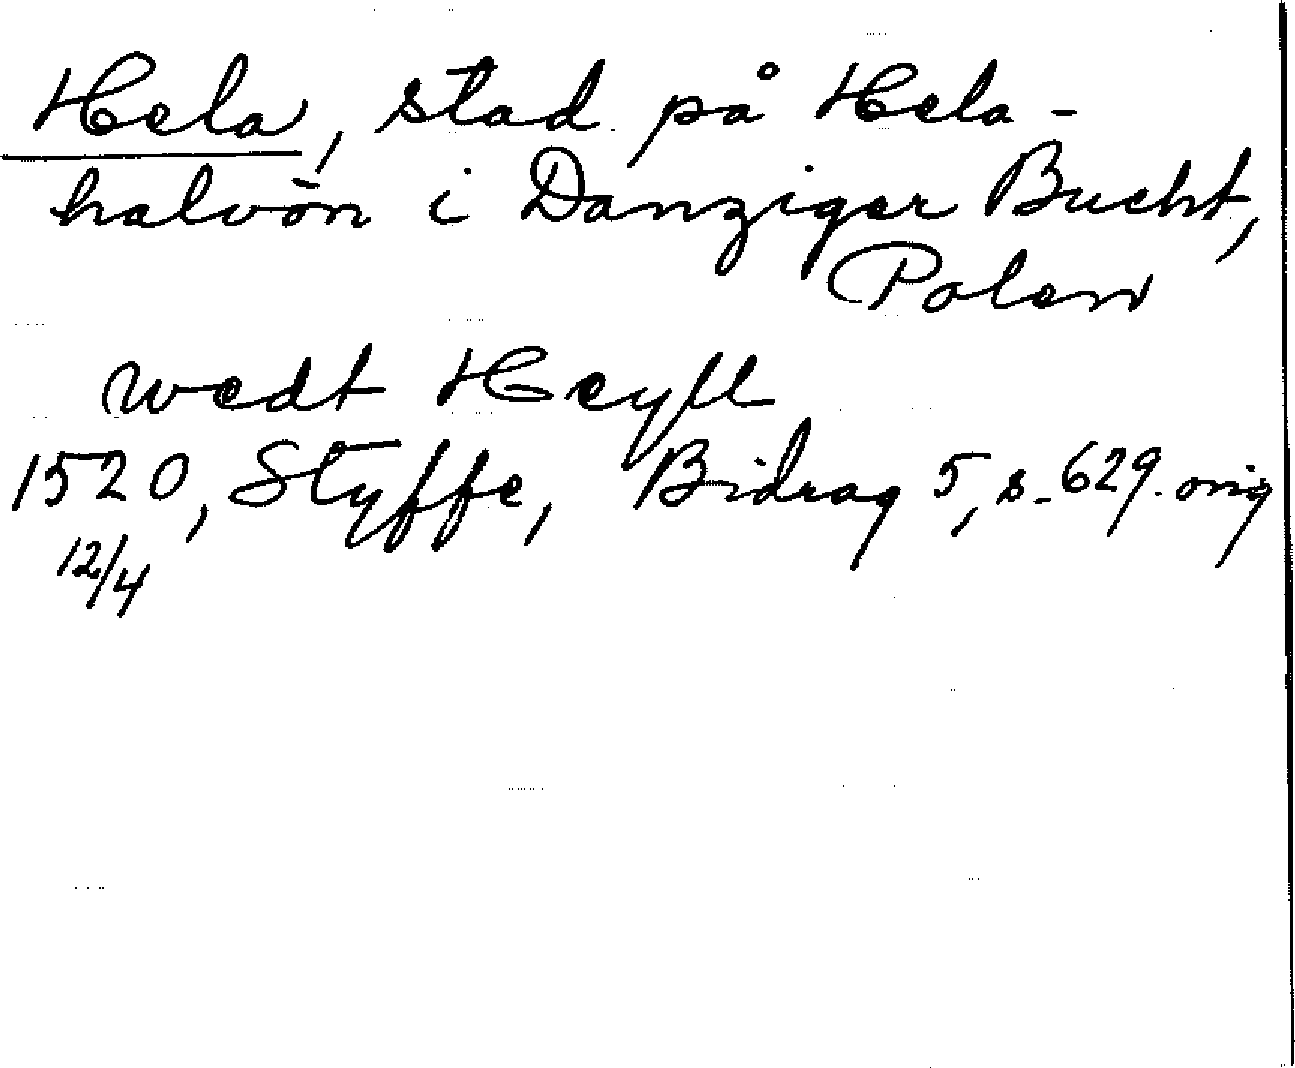 Hela, stad på Hela-
halvön i Danziger Bucht,
Polen
wedt Heyll
1520, Styffe, Bidrag 5, s. 629. orig
12/4